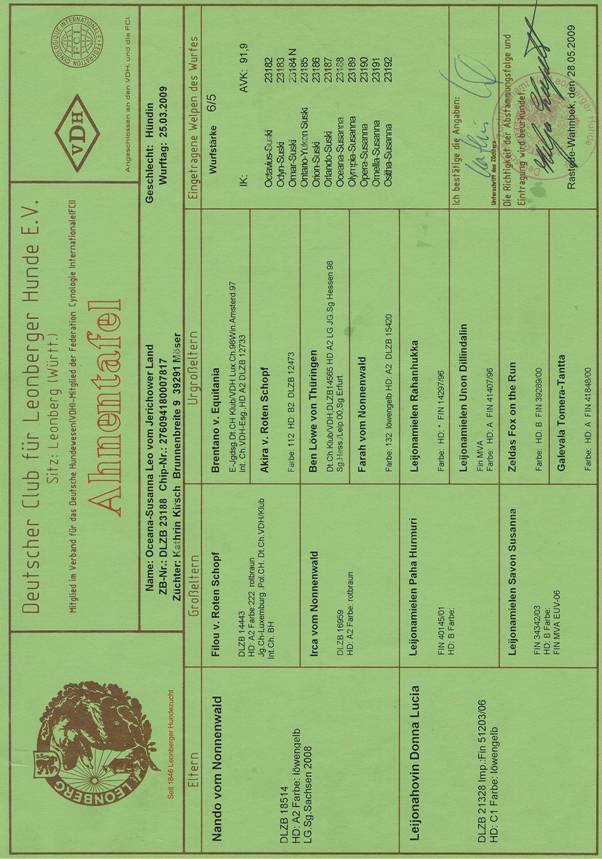 LEONBERG
Seit 1846 Leonberger Hundezucht
Deutscher Club für Leonberger Hunde E.V.
Sitz: Leonberg (Württ.)
Mitglied im Verband für das Deutsche Hundewesen(VDH)-Mitglied der Federation Cynologie Internationale(FCI)
Ahnentafel
VDH
FCI
Angeschlossen an den VDH und die FCI.
Name: Oceana-Susanna Leo vom Jerichower Land
Geschlecht: Hündin
ZB-Nr.: DLZB 23188 Chip-Nr.: 276094180007817
Wurftag: 25.03.2009
Züchter: Kathrin Kirsch Brunnenbreite 9, 39291 Möser
Eltern
Nando vom Nonnenwald
DLZB 18514
HD: A2 Farbe: löwengelb
LG.Sg.Sachsen 2008
Leijonahovin Donna Lucia
DLZB 21328 Imp.:Fin 51203/06
HD: C1 Farbe: löwengelb
Großeltern
Filou v. Roten Schopf
DLZB 14443
HD: A2 Farbe:222 rotbraun
Jg.Ch-Luxemburg .Pol.CH. Dt.Ch.VDH/Klub
Int.Ch. BH
Irca vom Nonnenwald
DLZB 16959
HD: A2 Farbe: rotbraun
Leijonamielen Paha Hurmuri
FIN 40145/01
HD: B Farbe:
Leijonamielen Savon Susanna
FIN 34342/03
HD: B Farbe:
FIN MVA EUV-06
Urgroßeltern
Brentano v. Equitania
E-Jgdsg.Dt.CH Klub/VDH Lux.Ch.96Win.Amsterd.97
Int. Ch.VDH-Esg., HD A2 DLZB 12733
Akira v. Roten Schopf
Farbe: 112 HD: B2 DLZB 12473
Ben Löwe von Thüringen
Dt.Ch Klub/VDH;DLZB14565 HD A2 LG JG.Sg Hessen 98
Sg.Hess./Leip.00,Sg Erfurt
Farah vom Nonnenwald
Farbe: 132 löwengelb HD: A2 DLZB 15420
Leijonamielen Rahanhukka
Farbe: HD: * FIN 14297/96
Leijonamielen Unon Dillindalin
Fin MVA
Farbe: HD: A FIN 41407/96
Zeldas Fox on the Run
Farbe: HD: B FIN 39289/00
Galevala Tomera-Tantta
Farbe: HD: A FIN 41848/00
Eingetragene Welpen des Wurfes
Wurfstärke 6/5
IK: AVK: 91,9
Octavius-Suski 23182
Odyn-Suski 23183
Omar-Suski 23184 N
Ontario-Yukon Suski 23185
Orion-Suski 23186
Orlando-Suski 23187
Oceana-Susanna 23188
Olympia-Susanna 23189
Opera-Susanna 23190
Ornella-Susanna 23191
Ositha-Susanna 23192
Ich bestätige die Angaben:
Unterschrift des Züchters
Die Richtigkeit der Abstammungsfolge und
Eintragung wird beurkundet:
Rastede-Wahnbek, den 28.05.2009